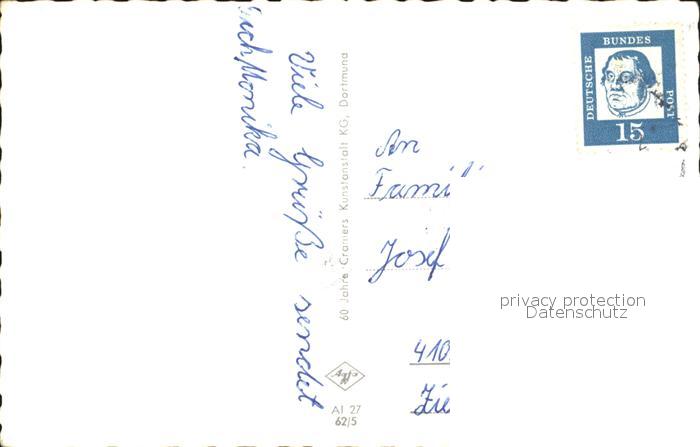 Viele Grüße sendet
Euch Monika.
60 Jahre Cramers Kunstanstalt KG, Dortmund
Agfa
AI 27
62/5
DEUTSCHE
BUNDES
POST
15
An
Famil
Josef
410
Zie
privacy protection
Datenschutz